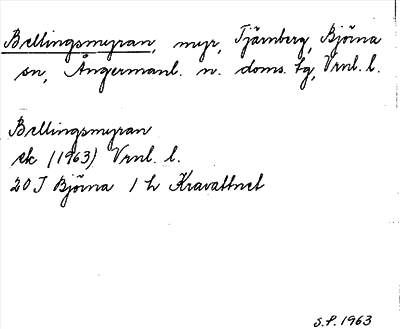 Bellingsmyran, myr, Tjärnberg, Björna
sn, Ångermanl. n. doms. tg, Vrnl. l.
Bellingsmyran
ek (1963) Vrnl. l.
20 J Björna 1 h Kravattnet
S.P. 1963